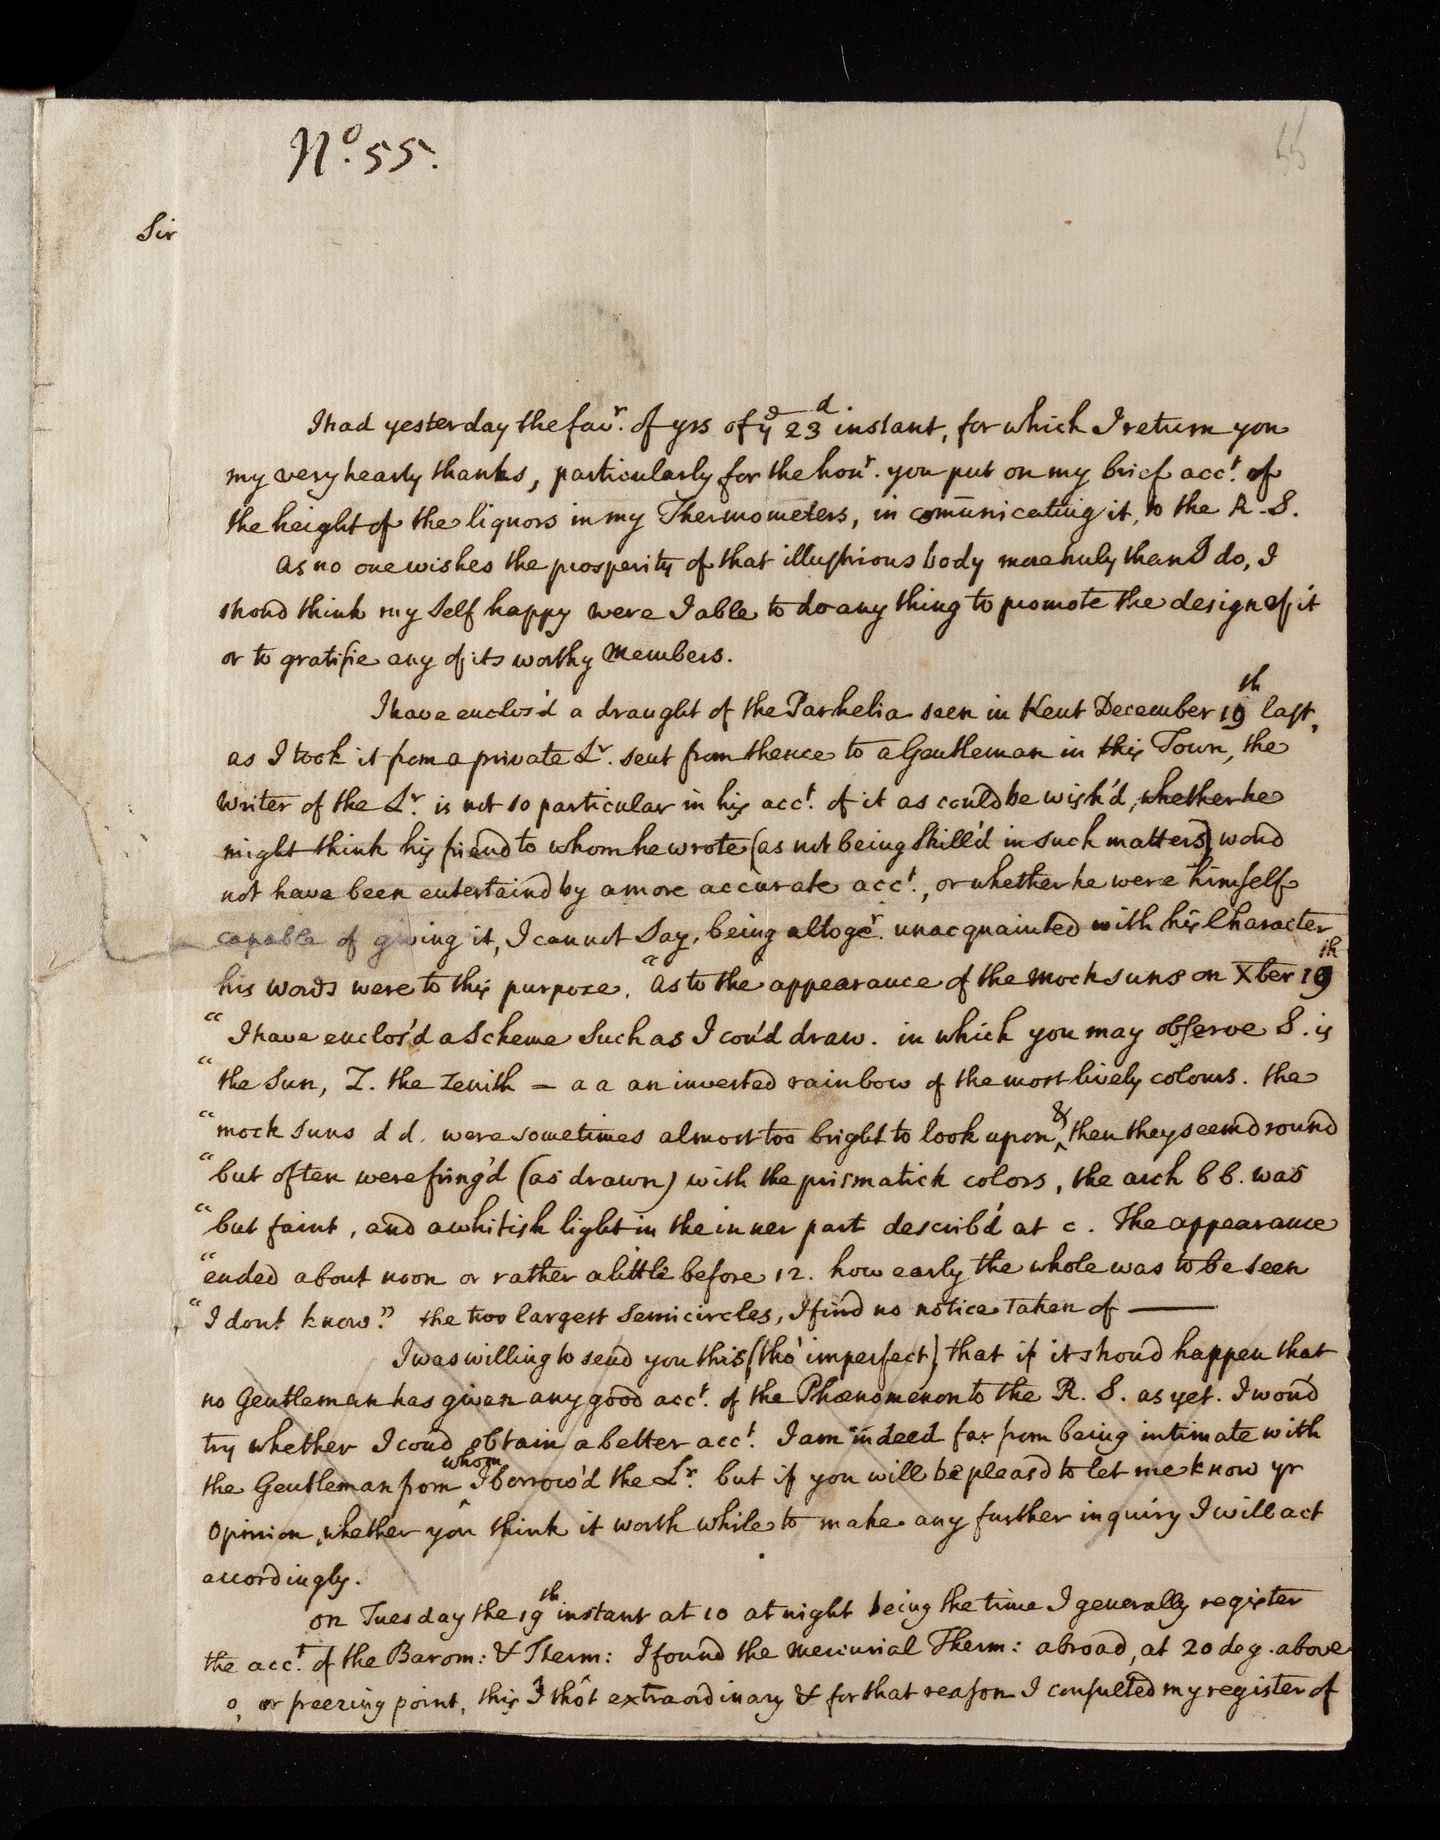 No. 55.
55
Sir
I had yesterday the favr. of yrs of ye 23d. instant, for which I return you
my very hearty thanks, particularly for the honr. you put on my brief acct. of
the height of the liquors in my Thermometers, in com̄unicating it, to the R. S.
as no one wishes the prosperity of that illustrious body more truly than I do, I
shoud think my self happy were I able to do any thing to promote the design of it
or to gratifie any of its worthy members.
I have enclos'd a draught of the Parhelia seen in Kent December 19th last,
as I took it from a private Lr. sent from thence to a Gentleman in this Town, the
writer of the Lr. is not so particular in his acct. of it as could be wish'd, whether he
might think his friend to whom he wrote (as not being skill'd in such matters) woud
not have been entertaind by a more accurate acct., or whether he were himself
capable of giving it, I cannot say, being altoger. unacquainted with his Character
his words were to this purpose. "as to the appearance of the mock suns on Xber 19th
" I have enclos'd a Scheme such as I cou'd draw. in which you may observe S. is
" the Sun, Z. the zenith – a a an inverted rainbow of the most lively colours. the
" mock suns d d. were sometimes almost too bright to look upon & then they seemd round
" but often were fring'd (as drawn) with the prismatick colors, the arch b b. was
" but faint, and a whitish light in the inner part describ'd at c. The appearance
" ended about noon or rather a little before 12. how early the whole was to be seen
" I dont know." the two largest semicircles, I find no notice taken of —
I was willing to send you this (tho' imperfect) that if it shoud happen that
no Gentleman has given any good acct. of the Phænomenon to the R. S. as yet. I wou'd
try whether I coud obtain a better acct. I am indeed far from being intimate with
the Gentleman from whom I borrow'd the Lr. but if you will be pleasd to let me know yr
opinion, whether you think it worth while to make any further inquiry I will act
accordingly.
on Tuesday the 19th instant at 10 at night being the time I generally register
the acct. of the Barom: & Therm: I found the mercurial Therm: abroad, at 20 deg. above
0, or freezing point, this I thôt extraordinary & for that reason I consulted my register of